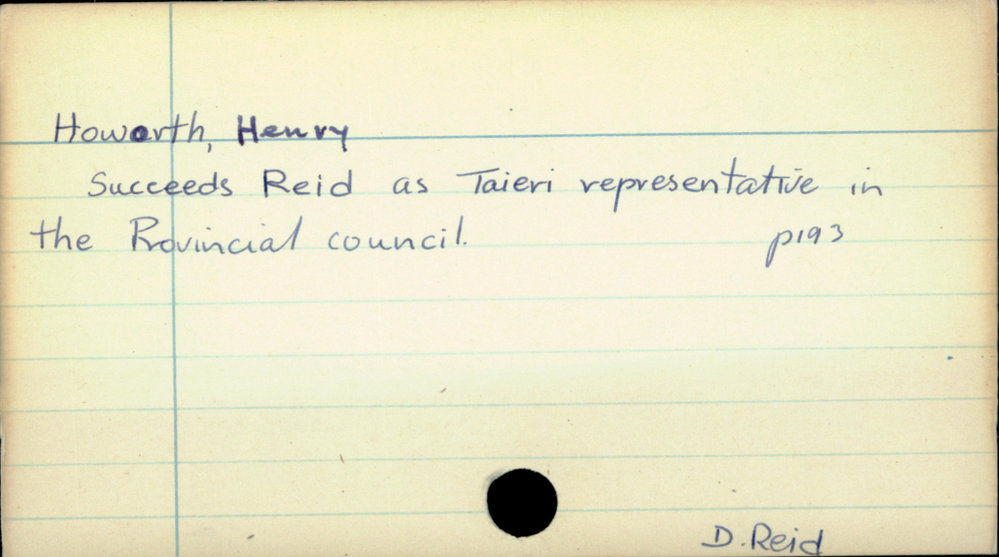 Howorth, Henry
Succeeds Reid as Taieri representative in
the Provincial council. p193
D. Reid